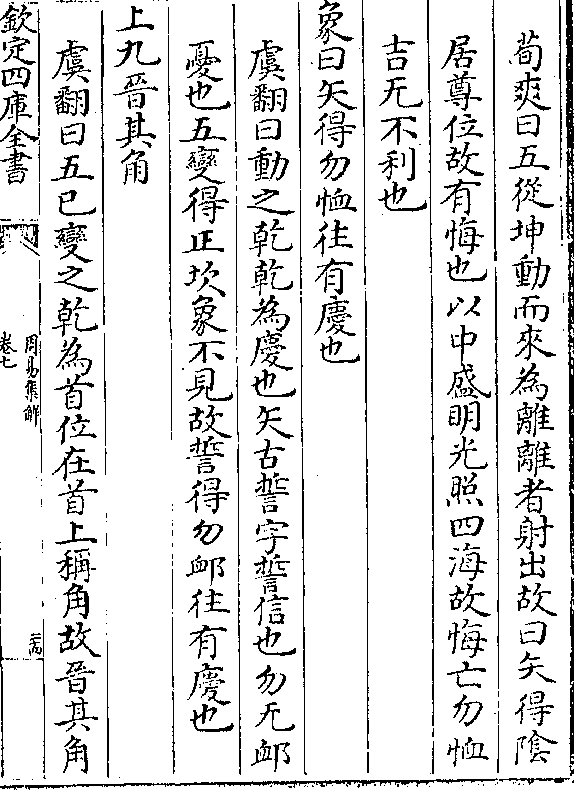 荀爽曰五從坤動而來為離離者射出故曰矢得陰
居尊位故有悔也以中盛明光照四海故悔亡勿恤
吉无不利也
象曰矢得勿恤往有慶也
虞翻曰動之乾乾為慶也矢古誓字誓信也勿无䘏
憂也五變得正坎象不見故誓得勿䘏往有慶也
上九晉其角
虞翻曰五已變之乾為首位在首上稱角故晉其角
欽定四庫全書
周易集解
卷七